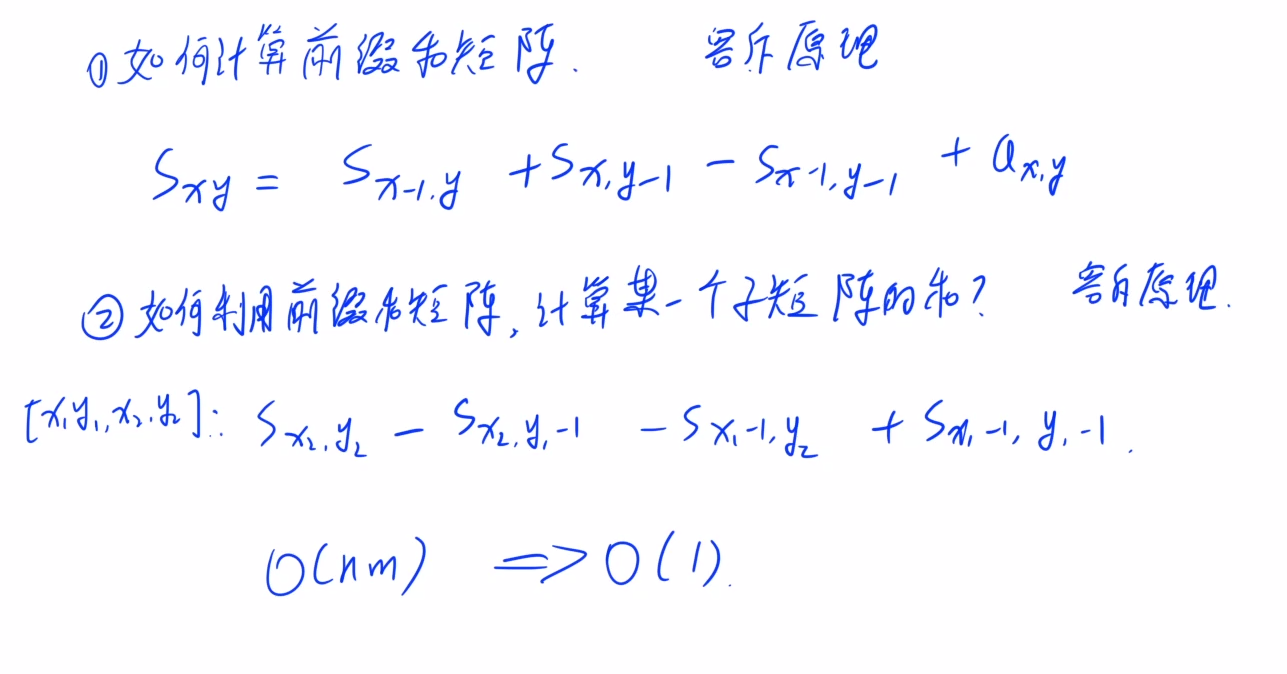 ①如何计算前缀和矩阵. 容斥原理
Sxy = Sx-1,y + Sx,y-1 - Sx-1,y-1 + ax,y
②如何利用前缀和矩阵,计算某一个子矩阵的和? 容斥原理.
[x1y1,x2,y2]: Sx2,y2 - Sx2,y1-1 - Sx1-1,y2 + Sx1-1,y1-1.
O(nm) => O(1).